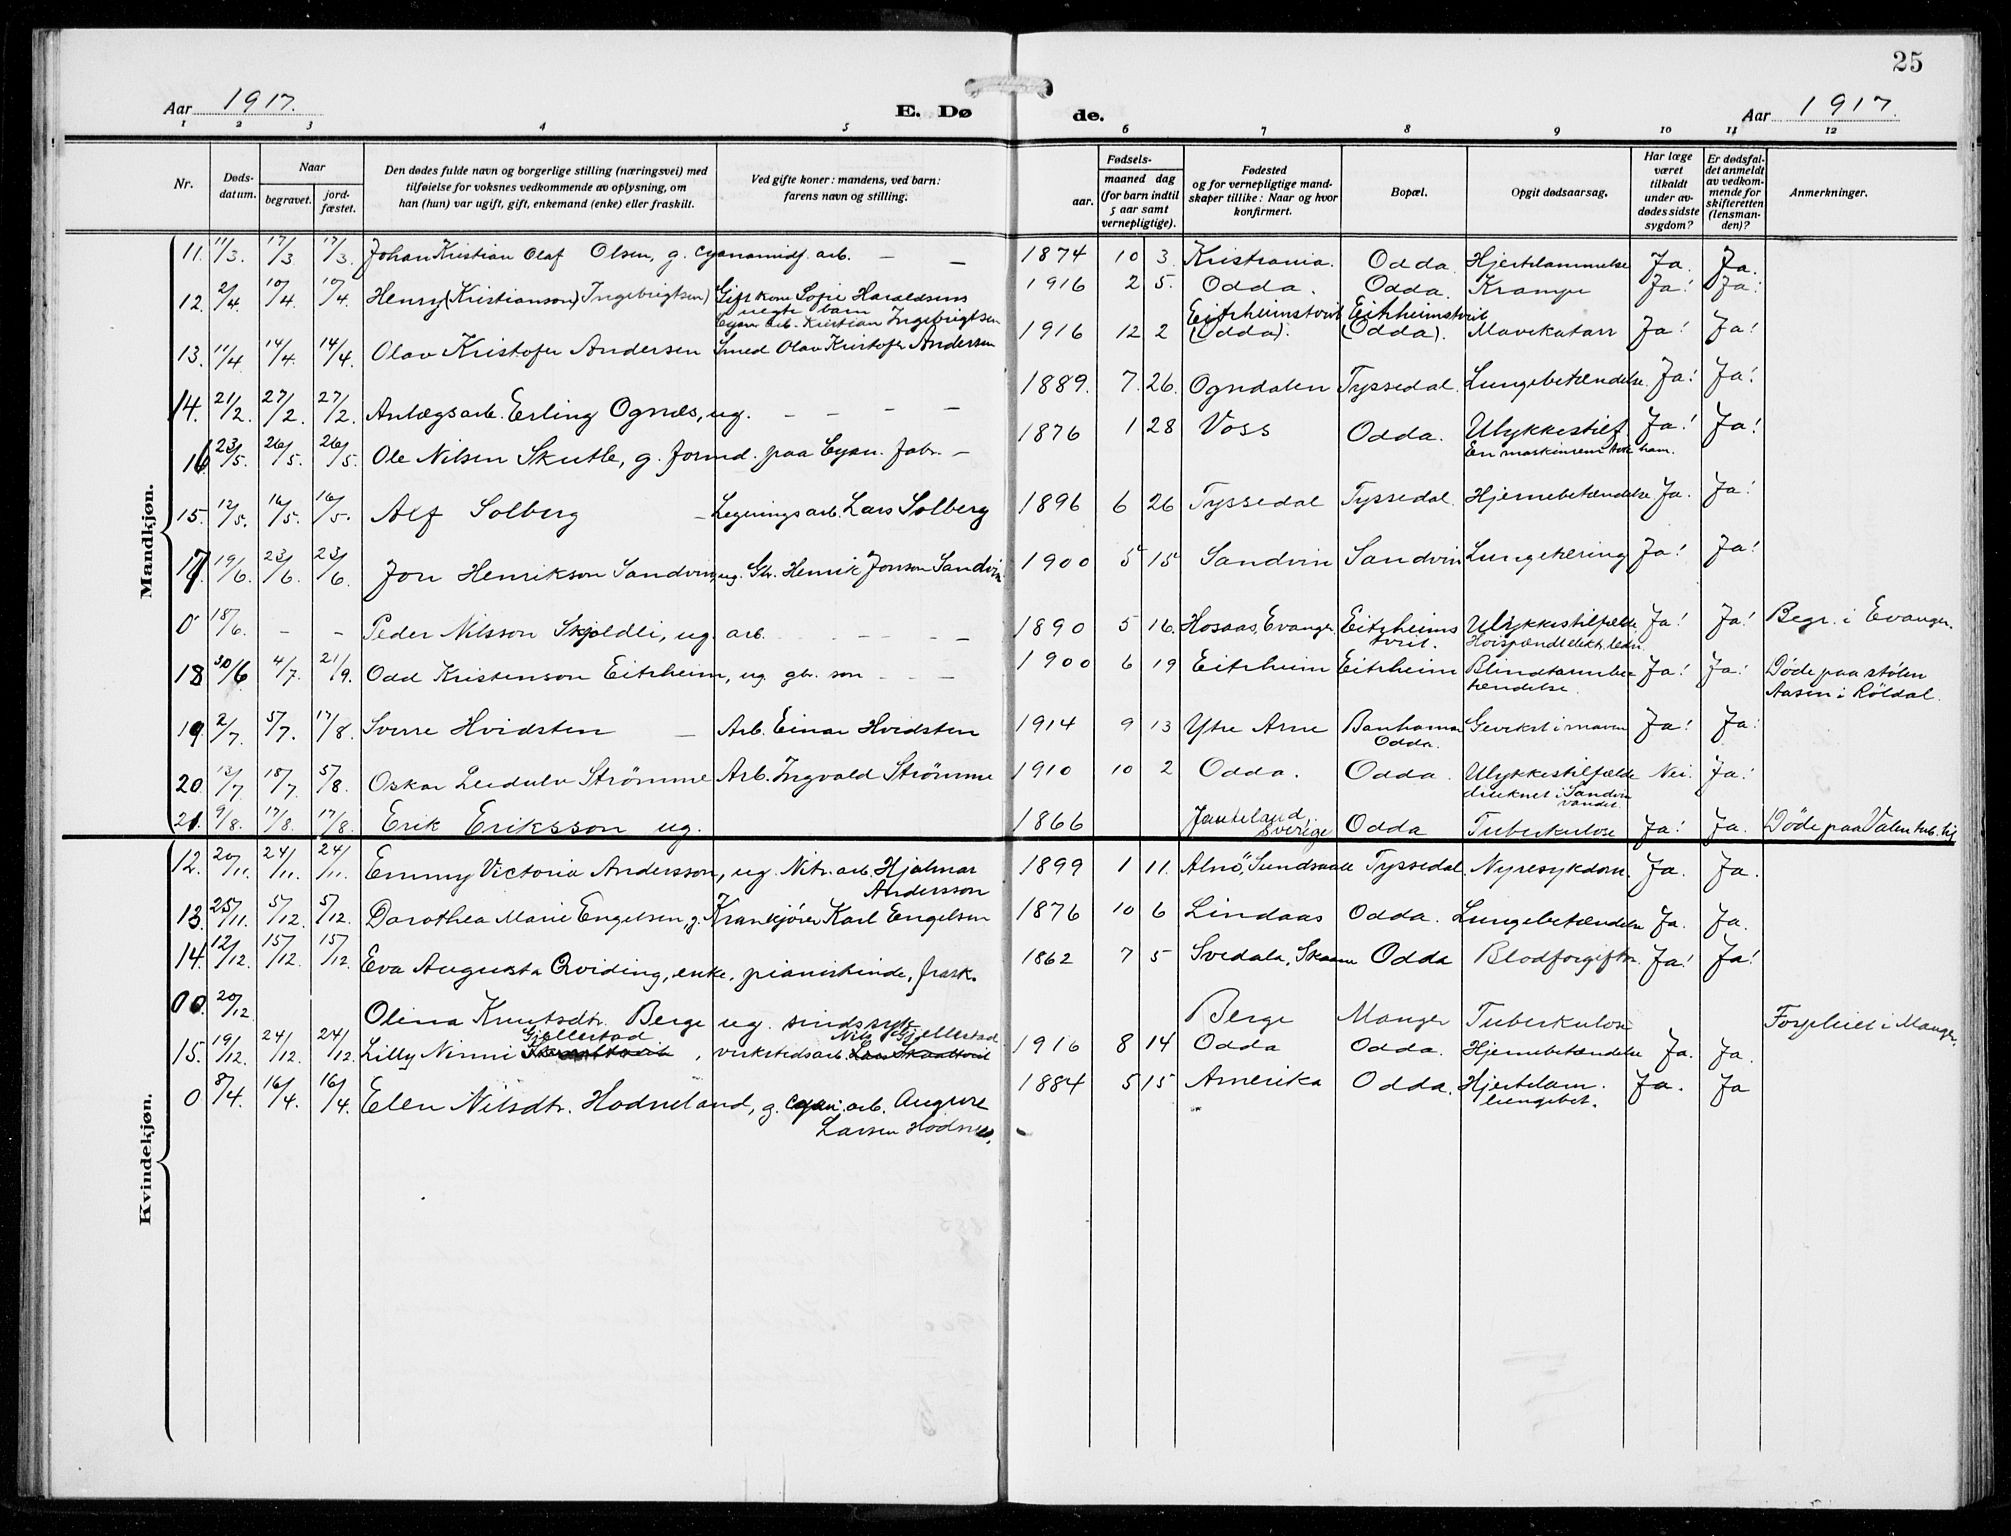 25
Aar 1917. E. Dø de. Aar 1917.
1 2 3 4 5 6 7 8 9 10 11 12
Nr. Døds-datum. Naar begravet. jord-fæstet. Den dødes fulde navn og borgerlige stilling (næringsvei) med tilføielse for voksnes vedkommende av oplysning, om han (hun) var ugift, gift, enkemand (enke) eller fraskilt. Ved gifte koner: mandens, ved barn: farens navn og stilling. Fødsels- aar. maaned dag (for barn indtil 5 aar samt vernepligtige). Fødested og for vernepligtige mand-skaper tillike: Naar og hvor konfirmert. Bopæl. Opgit dødsaarsag. Har læge været tilkaldt under av-dødes sidste sygdom? Er dødsfal-det anmeldt av vedkom-mende for skifteretten (lensman-den)? Anmerkninger.
Mandkjøn.
11. 11/3. 17/3 17/3. Johan Kristian Olaf Olsen, g. cyanamidf. arb. — — 1874 10 3. Kristiania. Odda. Hjertelammelse Ja. Ja.
12. 2/4. 10/4. 10/4. Henry (Kristianson) Ingebrigtsen) Gift kone Sofie Haraldsens uegte barn Cyan. arb. Kristian Ingebrigtsen 1916 2 5. Odda. Odda. Krampe Ja! Ja!
13. 11/4. 14/4. 14/4. Olav Kristofer Andersen Smed Olav Kristofer Andersen 1916 12 2 Eitrheimstveit (Odda). Eitrheimstveit (Odda). Mavekatarr Ja! Ja!
14. 21/2. 27/2. 27/2. Anlægsarb. Erling Ognæs, ug. — — — — 1889. 7. 26. Ogndalen Tyssedal. Lungebetændelse. Ja! Ja!
16 23/5. 26/5. 26/5. Ole Nilsen Skutle, g. formd. paa Cyan. fabr. — 1876 1 28 Voss Odda. Ulykkestilf. En maskinrem tok ham. Ja! Ja!
15. 12/5. 16/5. 16/5. Alf Solberg — Legeringsarb. Lars Solberg 1896 6 26 Tyssedal Tyssedal. Hjernebetændelse Ja. Ja!
17. 19/6. 23/6. 23/6 Jon Henrikson Sandvin, ug. Gbr. Henrik Jonson Sandvin 1900 5 15 Sandvin Sandvin Lungetæring Ja! Ja!
0 18/6. — — Peder Nilsson Skjoldli, ug. arb. — — — — 1890 5 16. Hosaas, Evanger Eitrheims tveit. Ulykkestilfælde Høispændt elektr. ledn. Ja! Ja! Begr. i Evanger.
18 30/6 4/7. 21/9. Odd Kristenson Eitrheim, ug. gbr. søn — — 1900 6 19 Eitrheim Eitrheim Blindtarmbe-tændelse. Ja! Ja! Døde paa stølen Aasen i Röldal.
19 2/7. 5/7. 17/8. Sverre Hvidsten — Arb. Einar Hvidsten 1914 9 13 Ytre Arne Odda. i maven Ja! Ja!
20. 13/7. 18/7. 5/8. Oskar Leidulv Strömme Arb. Ingvald Strömme 1910 10 2 Odda. Odda. Ulykkestilfælde druknet i Sandvin vandet. Nei. Ja!
21. 9/8. 17/8. 17/8. Erik Eriksson ug. 1866 Sverige Odda Tuberkulose Ja! Ja. Døde paa Valen tub.
Kvindekjøn.
12. 20/11. 24/11. 24/11. Emmy Victoria Andersson, ug. Nitr. arb. Hjalmar Andersson 1899 1 11. Alnö, Tyssedal. Nyresykdom. Ja. Ja.
13. 25/11. 5/12. 5/12. Dorothea Marie Engelsen, g. Krankjörer Karl Engelsen 1876 10 6 Lindaas Odda. Lungebetændelse Ja. Ja.
14. 12/12. 15/12. 15/12. Eva Augusta Qviding, enke, pianistinde, frask. 1862 7 5 Svedala, Skaane Odda Blodforgiftn. Ja! Ja!
00. 20/12. Olina Knutsdtr. Berge ug. sindssyk Berge Manger Tuberkulose Forpleiet i Manger.
15. 19/12. 24/12. 24/12. Lilly Ninni Gjellestad, verkstedsarb. Nils Gjellestad 1916 8 14 Odda Odda. Hjernebetændelse Ja. Ja.
0 8/4. 16/4. 16/4. Elen Nilsdtr. Hodneland, g. cyan. arb. Larsen 1884 5 15 Amerika Odda. Hjertelam. lungebet. Ja. Ja